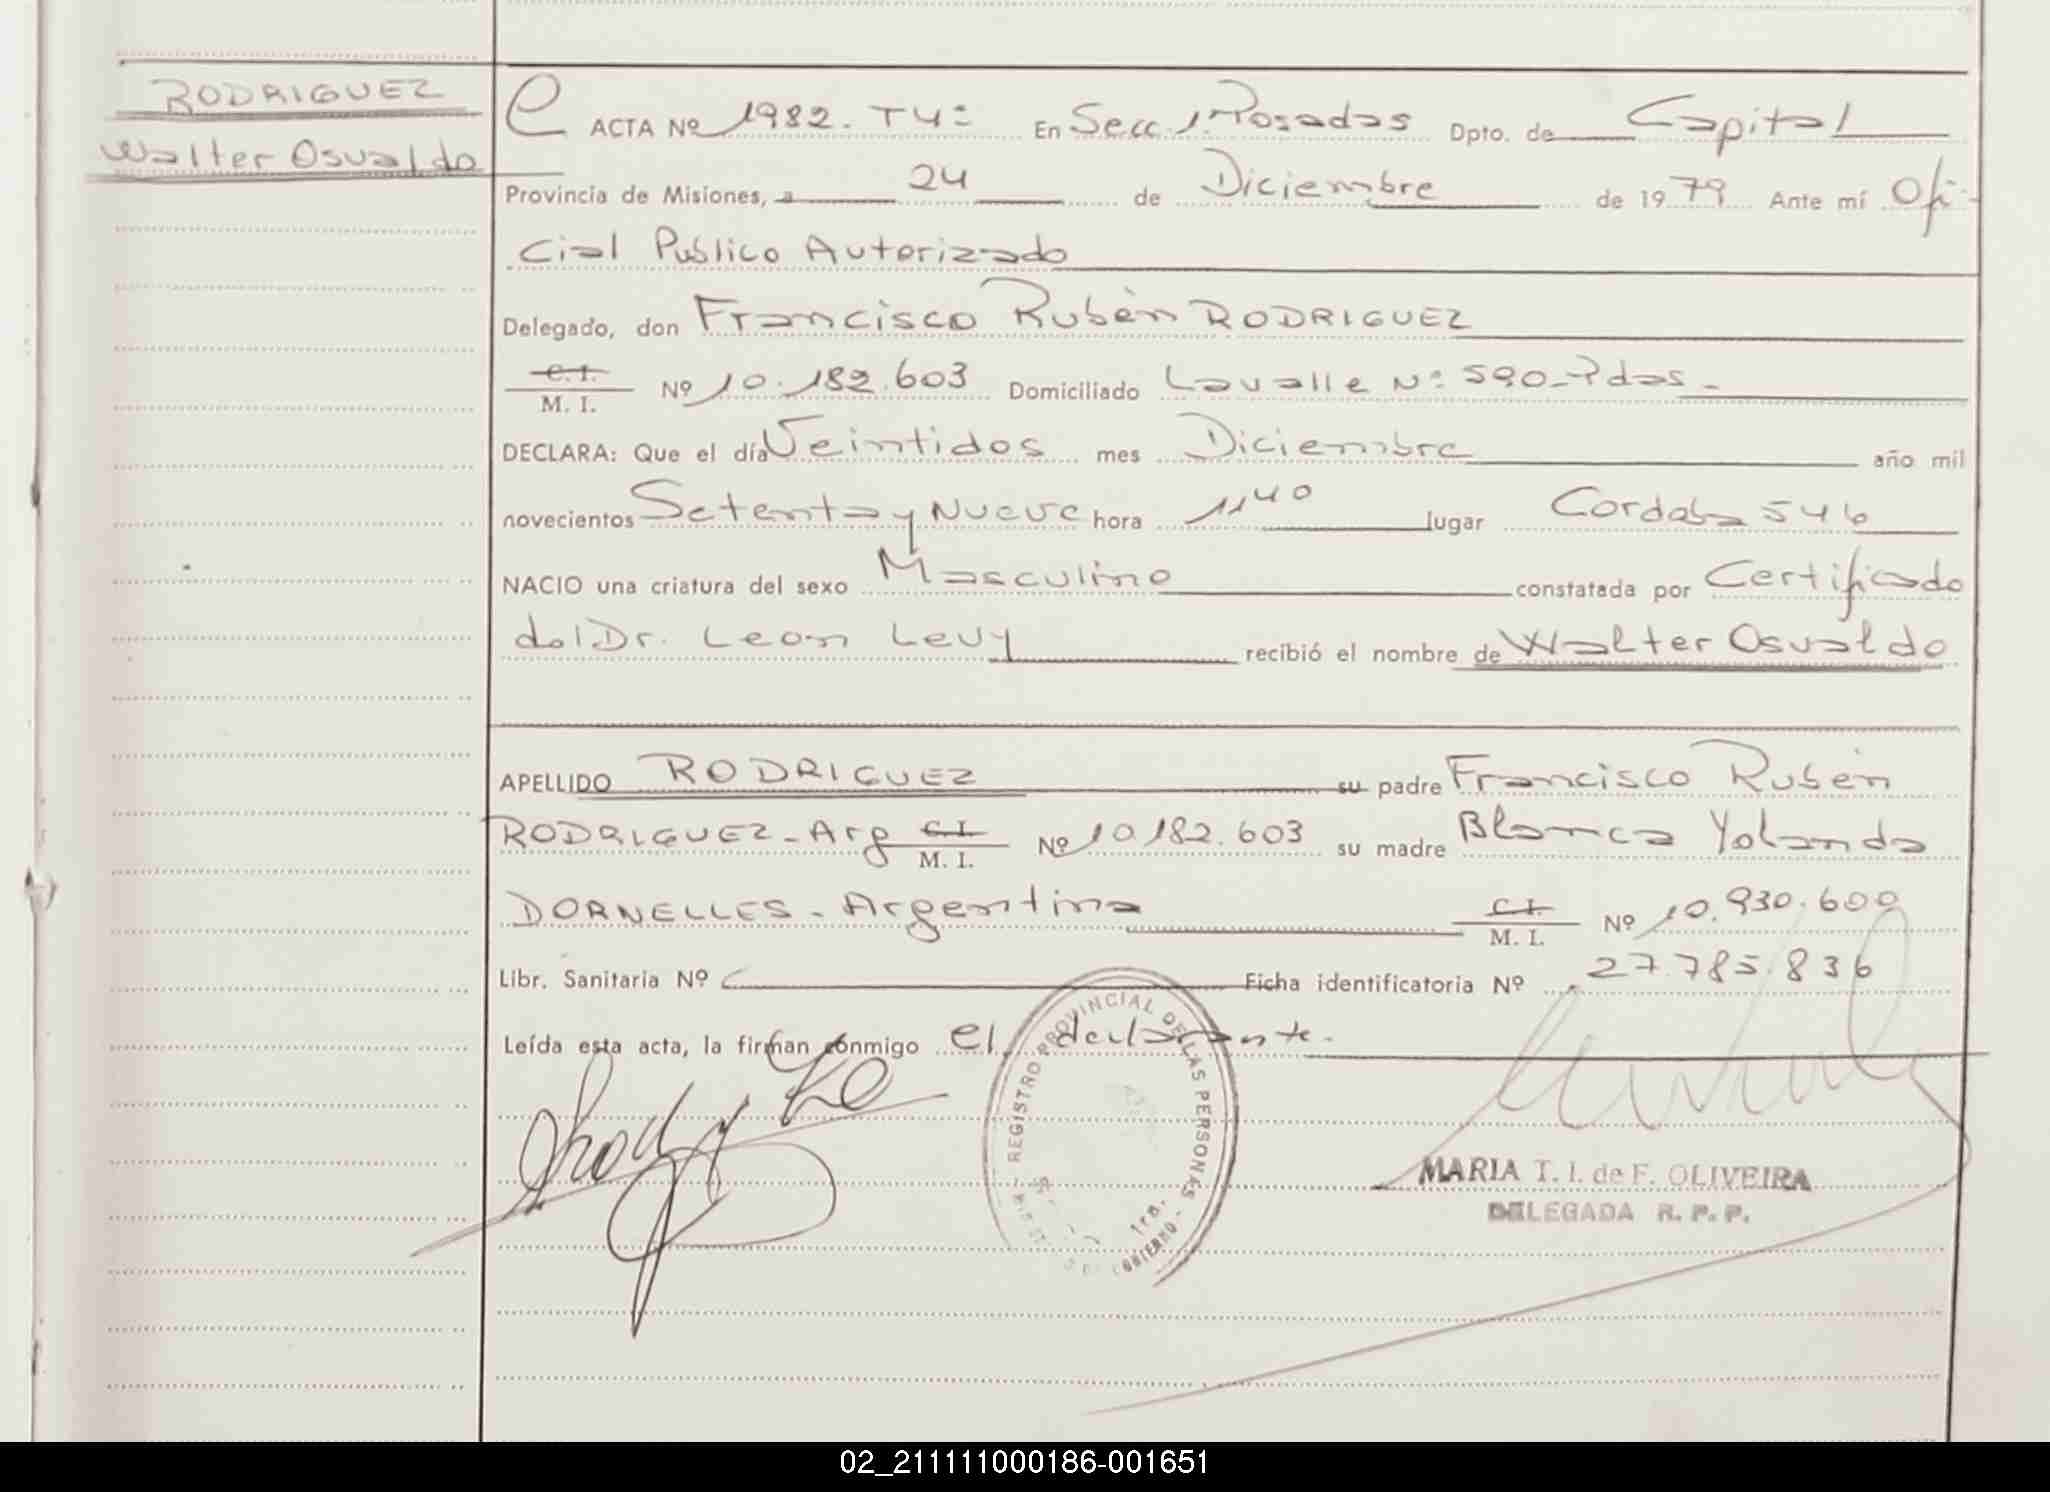 RODRIGUEZ
Walter Osvaldo
ACTA Nº 1982. T4º En Secc. 1ª Posadas Dpto. de Capital
Provincia de Misiones, a 24 de Diciembre de 1979 Ante mí Ofi-
cial Publico Autorizado
Delegado, don Francisco Rubén RODRIGUEZ
C. I.
M. I. Nº 10.182.603 Domiciliado Lavalle Nº 590-Pdas-
DECLARA: Que el día Veintidos mes Diciembre año mil
novecientos Setenta y Nueve hora 11 40 lugar Cordoba 546
NACIO una criatura del sexo Masculino constatada por Certificado
del Dr. Leon Levy recibió el nombre de Walter Osvaldo
APELLIDO RODRIGUEZ su padre Francisco Rubén
RODRIGUEZ-Arg C. I. M. I. Nº 10.182.603 su madre Blanca Yolanda
DORNELLES-Argentina C. I. M. I. Nº 10.930.600
Libr. Sanitaria Nº Ficha identificatoria Nº 27.785.836
Leída esta acta, la firman conmigo el declarante.
REGISTRO PROVINCIAL DE LAS PERSONAS
1ra.
GOBIERNO
MARIA T. I. de F. OLIVEIRA
DELEGADA R. P. P.
02_211111000186-001651